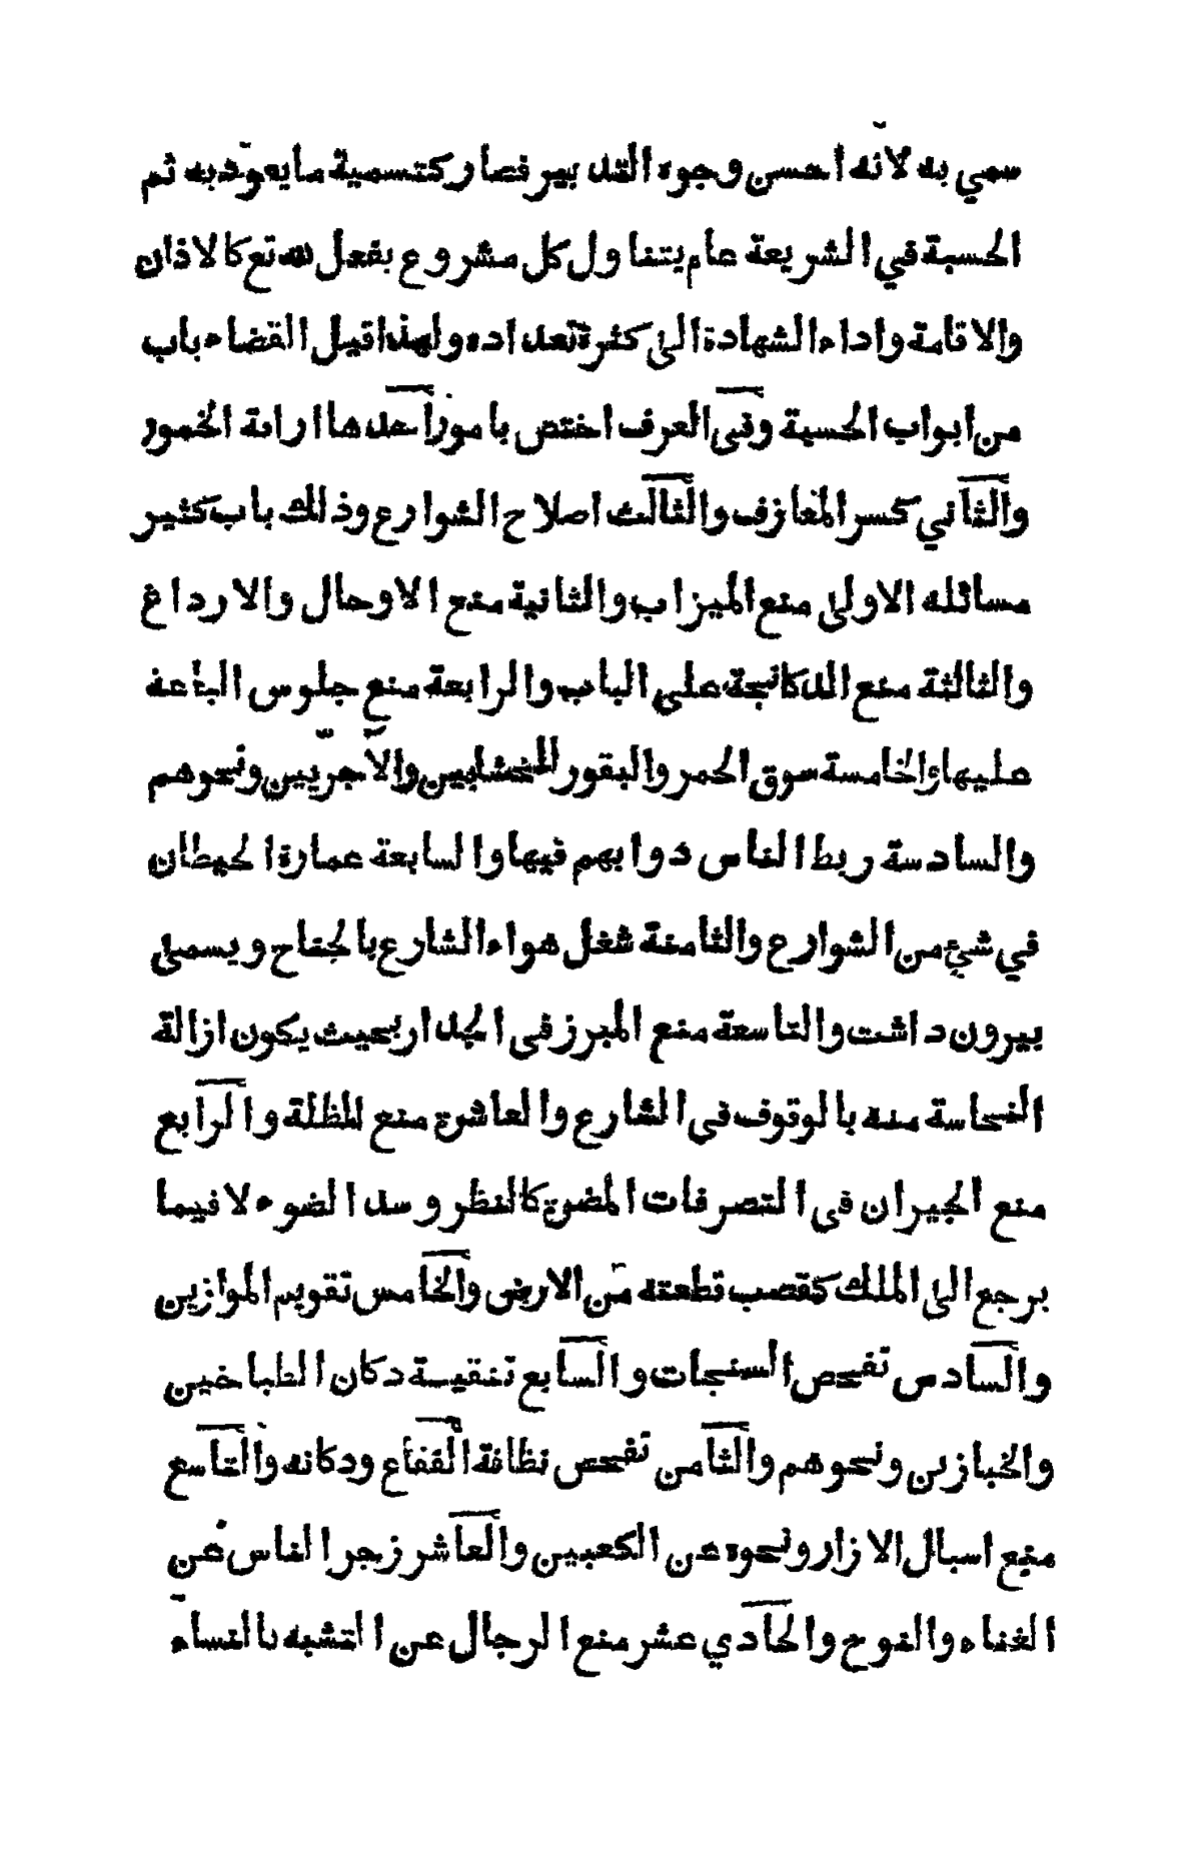 سمي به لانّه احسن وجوه التدبير فصار كتسمية ما يعوّد به ثم
الحسبة في الشريعة عام يتناول كل مشروع بفعل لله تع كالاذان
والاقامة واداء الشهادة الى كثرة تعداده ولهذا قيل القضاء باب
من ابواب الحسبة وفى العرف اختص بامور احدها اراقة الخمور
والثاني كسر المغازف والثالث اصلاح الشوارع وذلك باب كثير
مسائله الاولى منع الميزاب والثانية منع الاوحال والارداغ
والثالثة منع الدكانجة على الباب والرابعة منع جلوس الباعة
عليها والخامسة سوق الحمر والبقور للخشابين والآجرّيين ونحوهم
والسادسة ربط الناس دوابهم فيها والسابعة عمارة الحيطان
في شيء من الشوارع والثامنة شغل هواء الشارع بالجناح ويسمى
بيرون داشت والتاسعة منع المبرز فى الجدار بحيث يكون ازالة
النجاسة منه بالوقوف فى الشارع والعاشرة منع المظلة والرابع
منع الجيران فى التصرفات المضرة كالنظر وسد الضوء لا فيما
يرجع الى الملك كقصب قطعته من الارض والخامس تقويم الموازين
والسادس تفحص السنجات والسابع تنقيسة دكان الطباخين
والخبازين ونحوهم والثامن تفحص نظافة القفاع ودكانه والتاسع
منع اسبال الازار ونحوه عن الكعبين والعاشر زجر الناس عن
الغناء والنوح والحادي عشر منع الرجال عن التشبه بالنساء